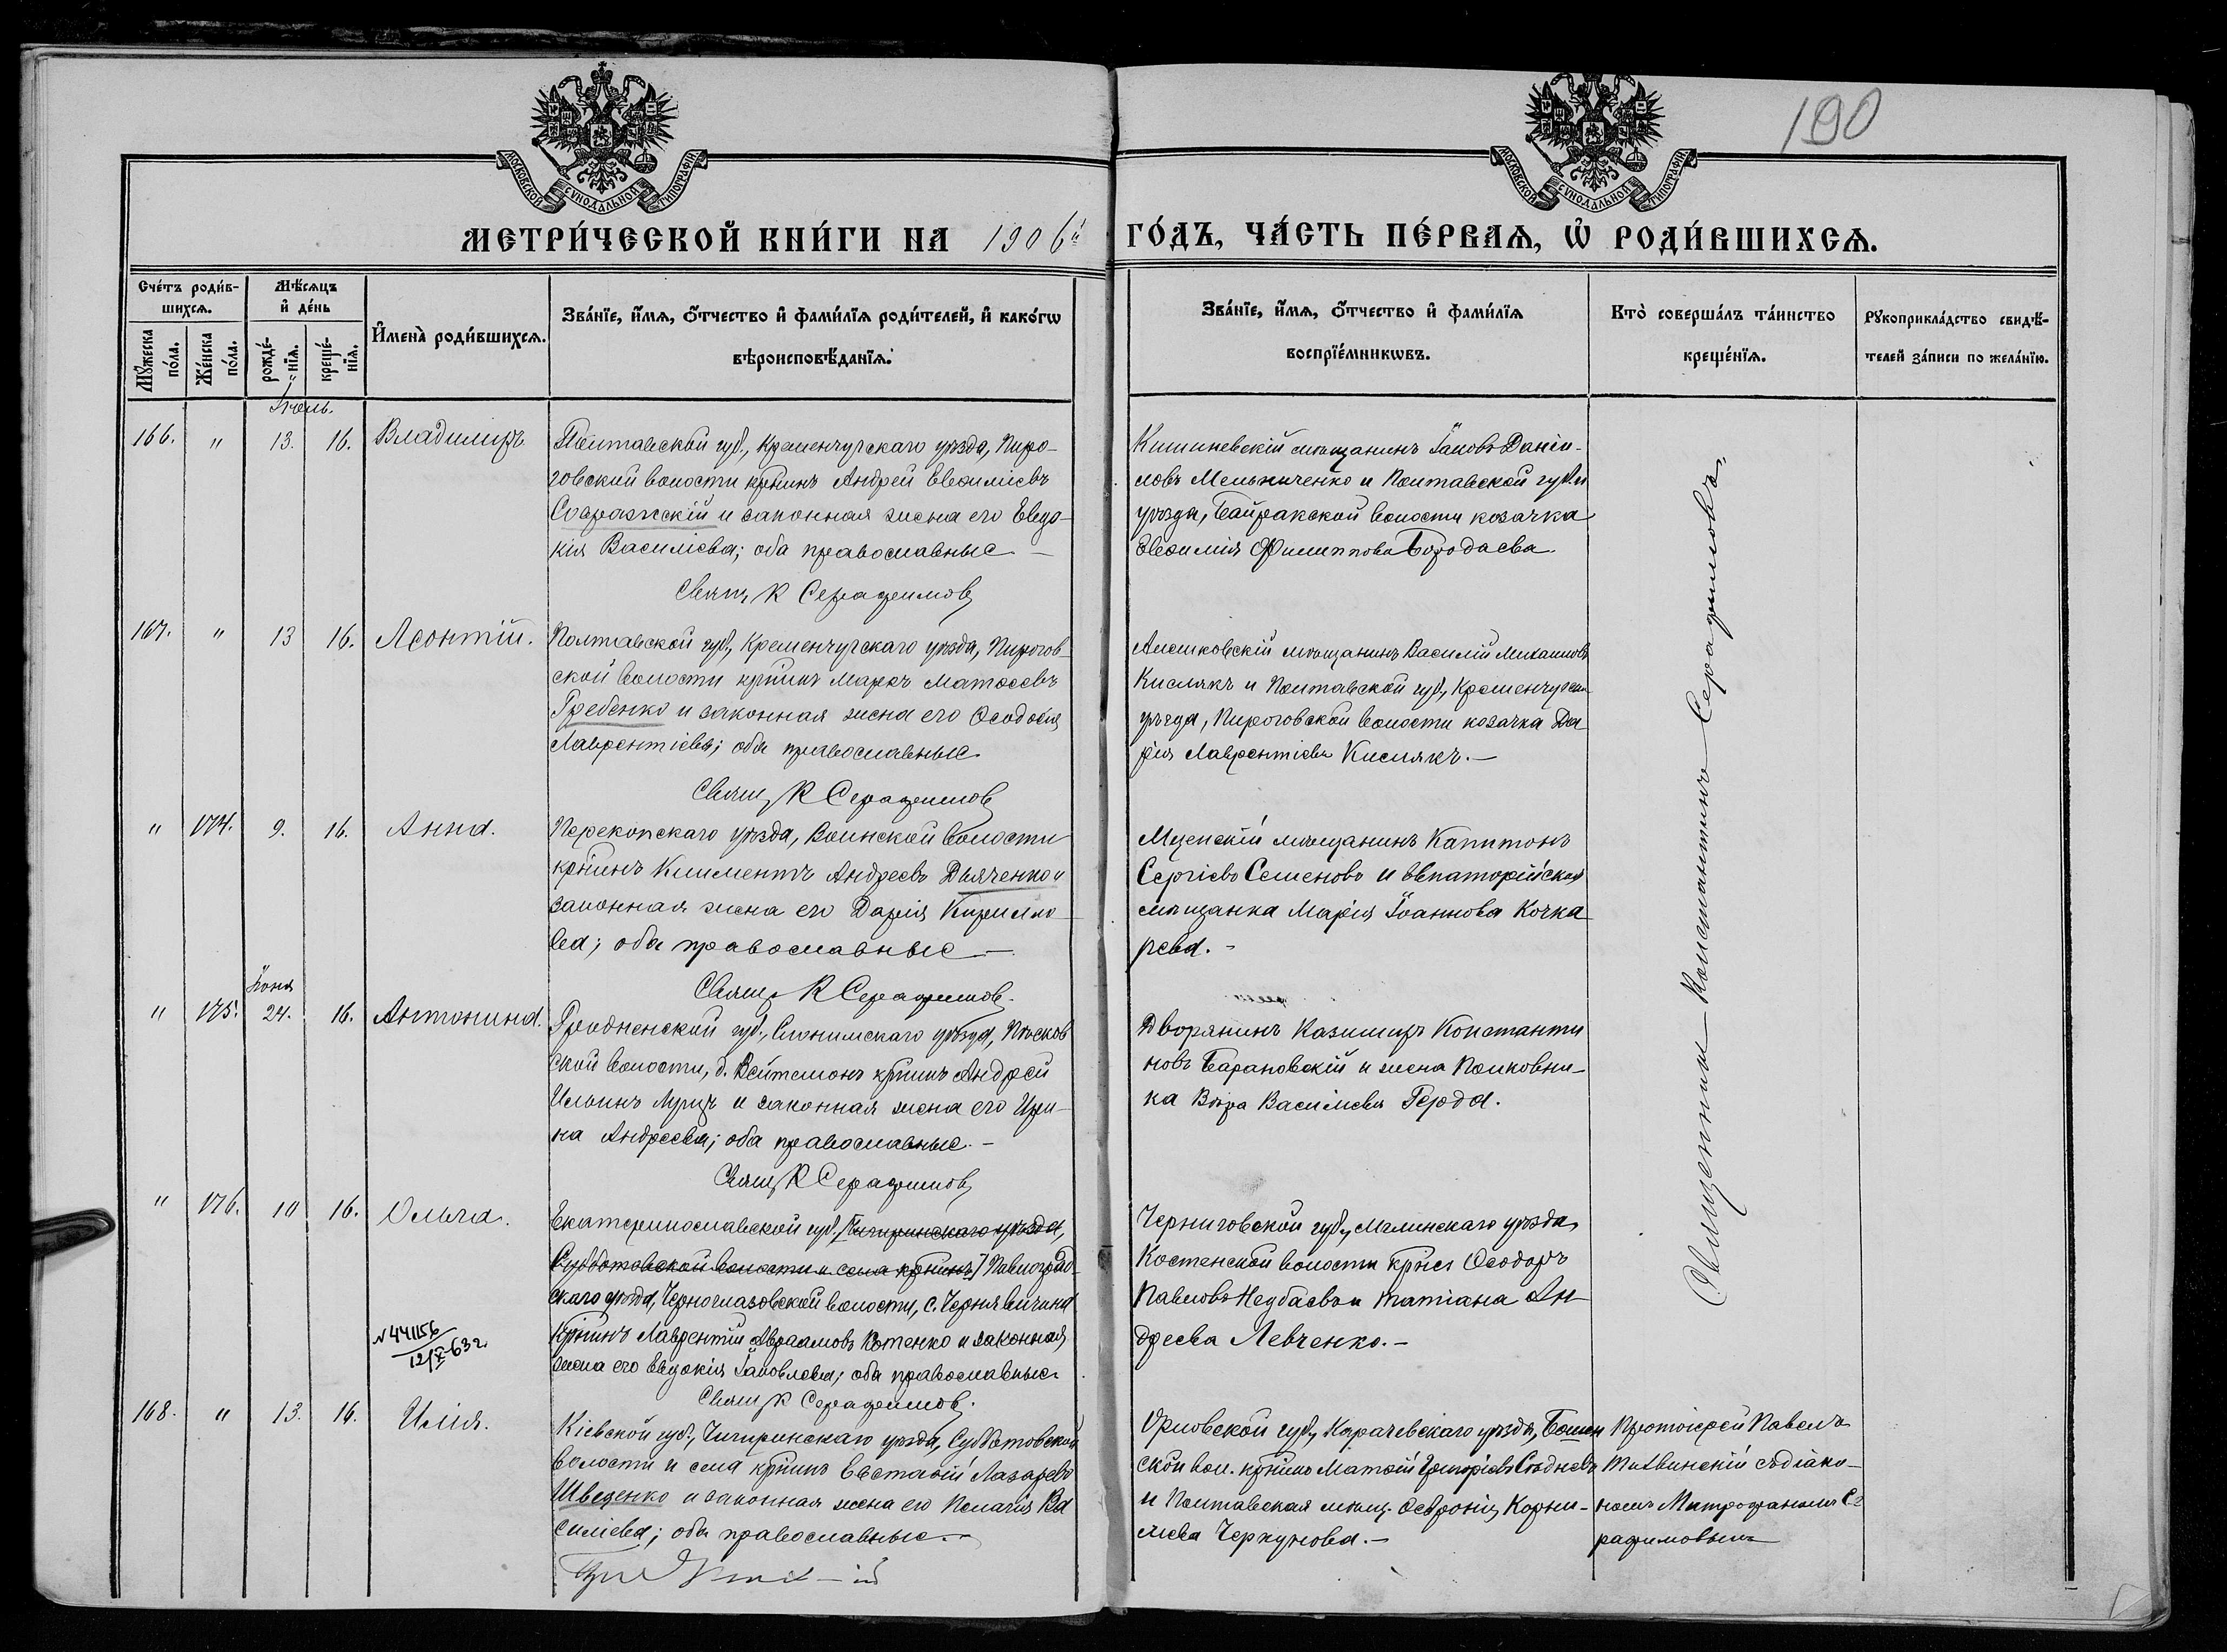 190
МОСКОВСКОЙ СУНОДАЛЬНОЙ ТИПОГРАФІИ.
МОСКОВСКОЙ СУНОДАЛЬНОЙ ТИПОГРАФІИ.
МЕТРИ́ЧЕСКОЙ КНИ́ГИ НА 1906й ГО́ДЪ, ЧА́СТЬ ПЕ́РВАѦ, Ѡ҆ РОДИ́ВШИХСѦ.
Сче́тъ роди́в-
шихсѧ.
Мꙋ́жеска по́ла.
Же́нска по́ла.
Мѣ́сѧцъ
и҆ де́нь
рожде́-нїѧ.
креще́-нїѧ.
И҆мена̀ роди́вшихсѧ.
Зва́нїе, и҆́мѧ, ѻ҆́тчество и҆ фами́лїѧ роди́телей, и҆ како́гѡ
вѣроисповѣ́данїѧ.
Зва́нїе, и҆́мѧ, ѻ҆́тчество и҆ фами́лїѧ
воспрїе́мникѡвъ.
Кто̀ соверша́лъ та́инство
креще́нїѧ.
Рꙋкоприкла́дство свидѣ́-
телей за́писи по жела́нїю.
Іюль.
166. " 13. 16. Владимиръ
Полтавской губ., Кременчугскаго уѣзда, Пиро-
говской волости крнинъ Андрей Евѳиміевъ
и законная жена его Евдо-
кія Василіева; оба православные —
Свящ. К Серафимовъ
Кишиневскій мѣщанинъ Іаковъ Даніи-
ловъ Мельниченко и Полтавской губ. и
уѣзда, Байракской волости козачка
Евѳимія Филиппова Бородаева.
167. " 13 16. Леонтій.
Полтавской губ., Кременчугскаго уѣзда, Пирогов-
ской волости крнинъ Маркъ Матѳеевъ
Гребенко и законная жена его Ѳеодосія
Лаврентіева; оба православные.
Свящ. К Серафимовъ
Алешковскій мѣщанинъ Василій Михаиловъ
Кислякъ и Полтавской губ., Кременчугск.
уѣзда, Пироговской волости козачка Да-
рія Лаврентіева Кислякъ. —
" 174. 9. 16. Анна.
Перекопскаго уѣзда, Воинской волости
крнинъ Климентъ Андреевъ Дьяченко и
законная жена его Дарія Кирилло-
ва; оба православные —
Свящ. К Серафимовъ.
Мценскій мѣщанинъ Капитонъ
Сергіевъ Семеновъ и Евпаторійская
мѣщанка Марія Іоаннова Кочка-
рева. -
Іюня
" 175. 24. 16. Антонина.
Гродненской губ., Слонимскаго уѣзда, Пѣсков-
ской волости, д. крнинъ Андрей
Ильинъ и законная жена его Ири-
на Андреева; оба православные. -
Свящ. К Серафимовъ
Дворянинъ Казимиръ Константи-
новъ Барановскій и жена Полковни-
ка Вѣра Василіева Герда.
" 176. 10 16. Ольга.
Екатеринославской губ. [Чигиринскаго уѣзда,
Субботовской волости и села крнинъ] Павлоград-
скаго уѣзда, волости, с.
крнинъ Лаврентій Авраамовъ Котенко и законная
жена его Евдокія Іаковлева; оба православные.
Свящ. К Серафимовъ.
Черниговской губ., Мглинскаго уѣзда,
Костенской волости крне Ѳеодоръ
Павловъ и Татіана Ан-
дреева Левченко. -
N 441156
12/X-63г.
168. " 13. 16. Илія.
Кіевской губ., Чигиринскаго уѣзда, Субботовской
волости и села крнинъ Евстафій Лазаревъ
Шведенко и законная жена его Пелагія Ва-
силіева; оба православные. -
Орловской губ., Карачевскаго уѣзда,
ской вол. крнинъ Матѳей Григоріевъ
и Полтавская мѣщ. Корни-
ліева Черкунова. -
Священникъ Константинъ Серафимовъ.
Протоіерей Павелъ
Тихвинскій съ діако-
номъ Митрофаномъ Се-
рафимовымъ